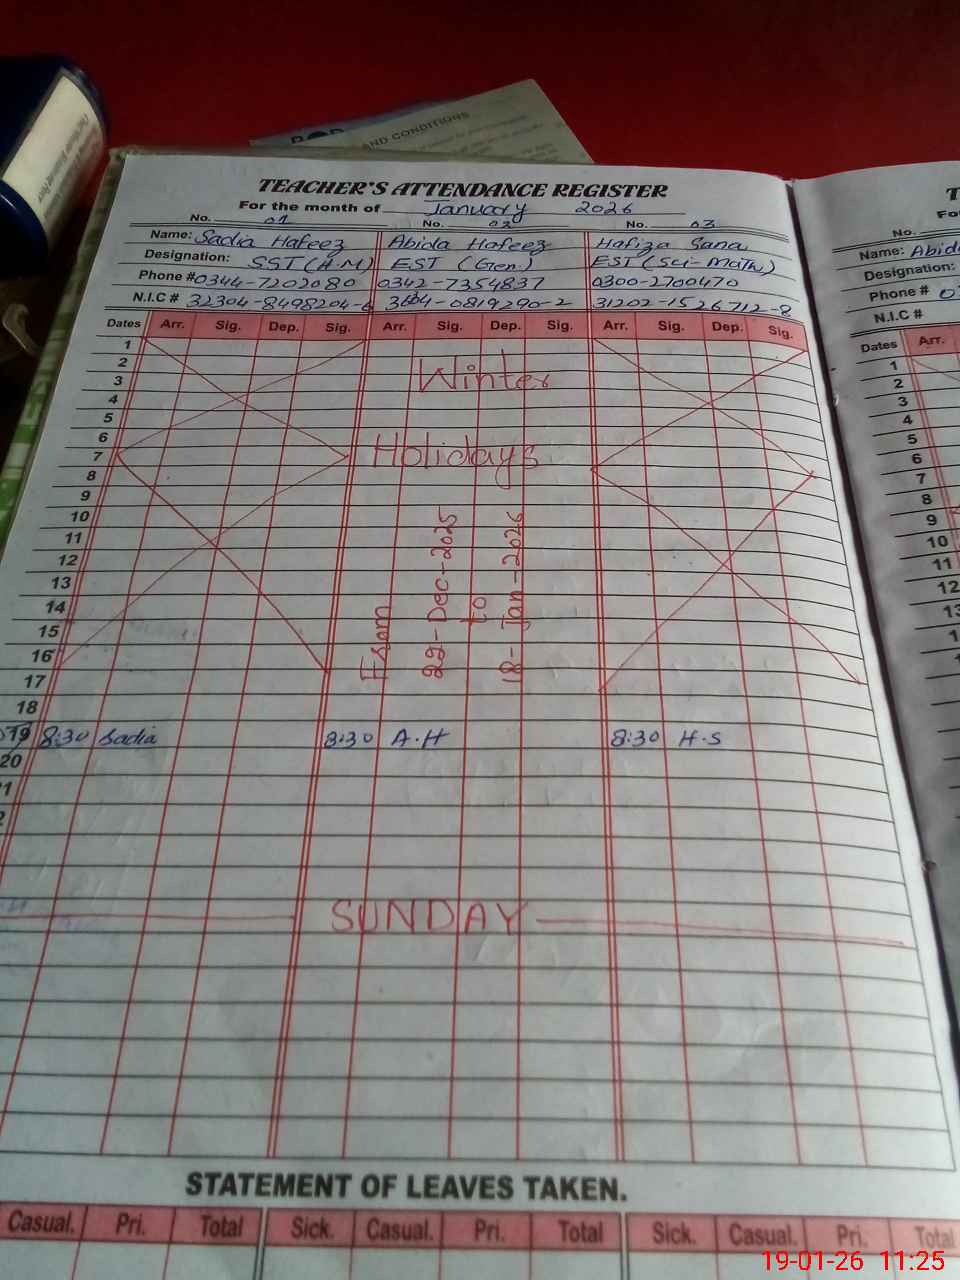 AND CONDITIONS
TEACHER'S ATTENDANCE REGISTER
For the month of January 2026
No. 01 No. 02 No. 03
Name: Sadia Hafeez Abida Hafeez Hafiza Sana
Designation: SST (H.M) EST (Gen.) EST (Sci-Math)
Phone # 0344-7202080 0342-7354837 0300-2700470
N.I.C # 32304-8498204-6 0819290-2 31202-1526712-8
Dates Arr. Sig. Dep. Sig. Arr. Sig. Dep. Sig. Arr. Sig. Dep. Sig.
1
2
3
4
5
6
7
8
9
10
11
12
13
14
15
16
17
18
Winter
Holidays
From
29-Dec-2025
to
18-Jan-2026
19 8:30 Sadia 8:30 A.H 8:30 H.S
20
SUNDAY
STATEMENT OF LEAVES TAKEN.
Casual. Pri. Total Sick. Casual. Pri. Total Sick. Casual. Pri. Total
Name: Abid
Designation:
Phone #
N.I.C #
Dates Arr.
1
2
3
4
5
6
7
8
9
10
11
12
19-01-26 11:25